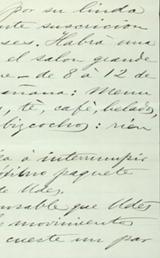 por su linda
nte suscricion
ses. Habrá una
el salon grande
e - de 8 a 12 de
añana: Menu
, té, café, helado,
bizcochos: rien
á interrumpir
ltimo paquete
de Udes.
nsable que Udes
movimientos
cueste un par